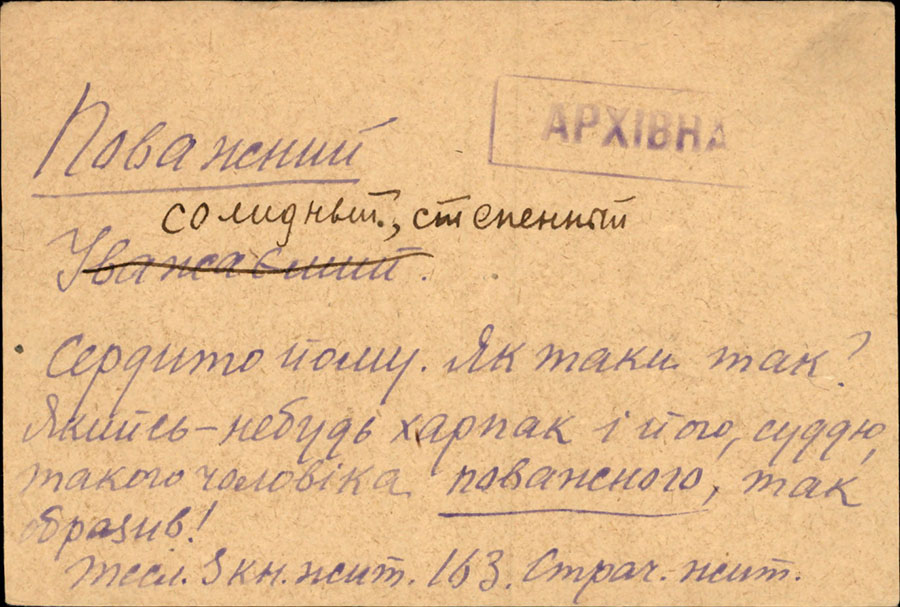 Поважний
АРХІВНА
солидный, степенный
Уважаємий.
Сердито йому. Як таки так?
Якийсь-небудь харпак і його, суддю,
такого чоловіка поважного, так
образив!
Тесл. З кн. жит. 163. Страч. жит.